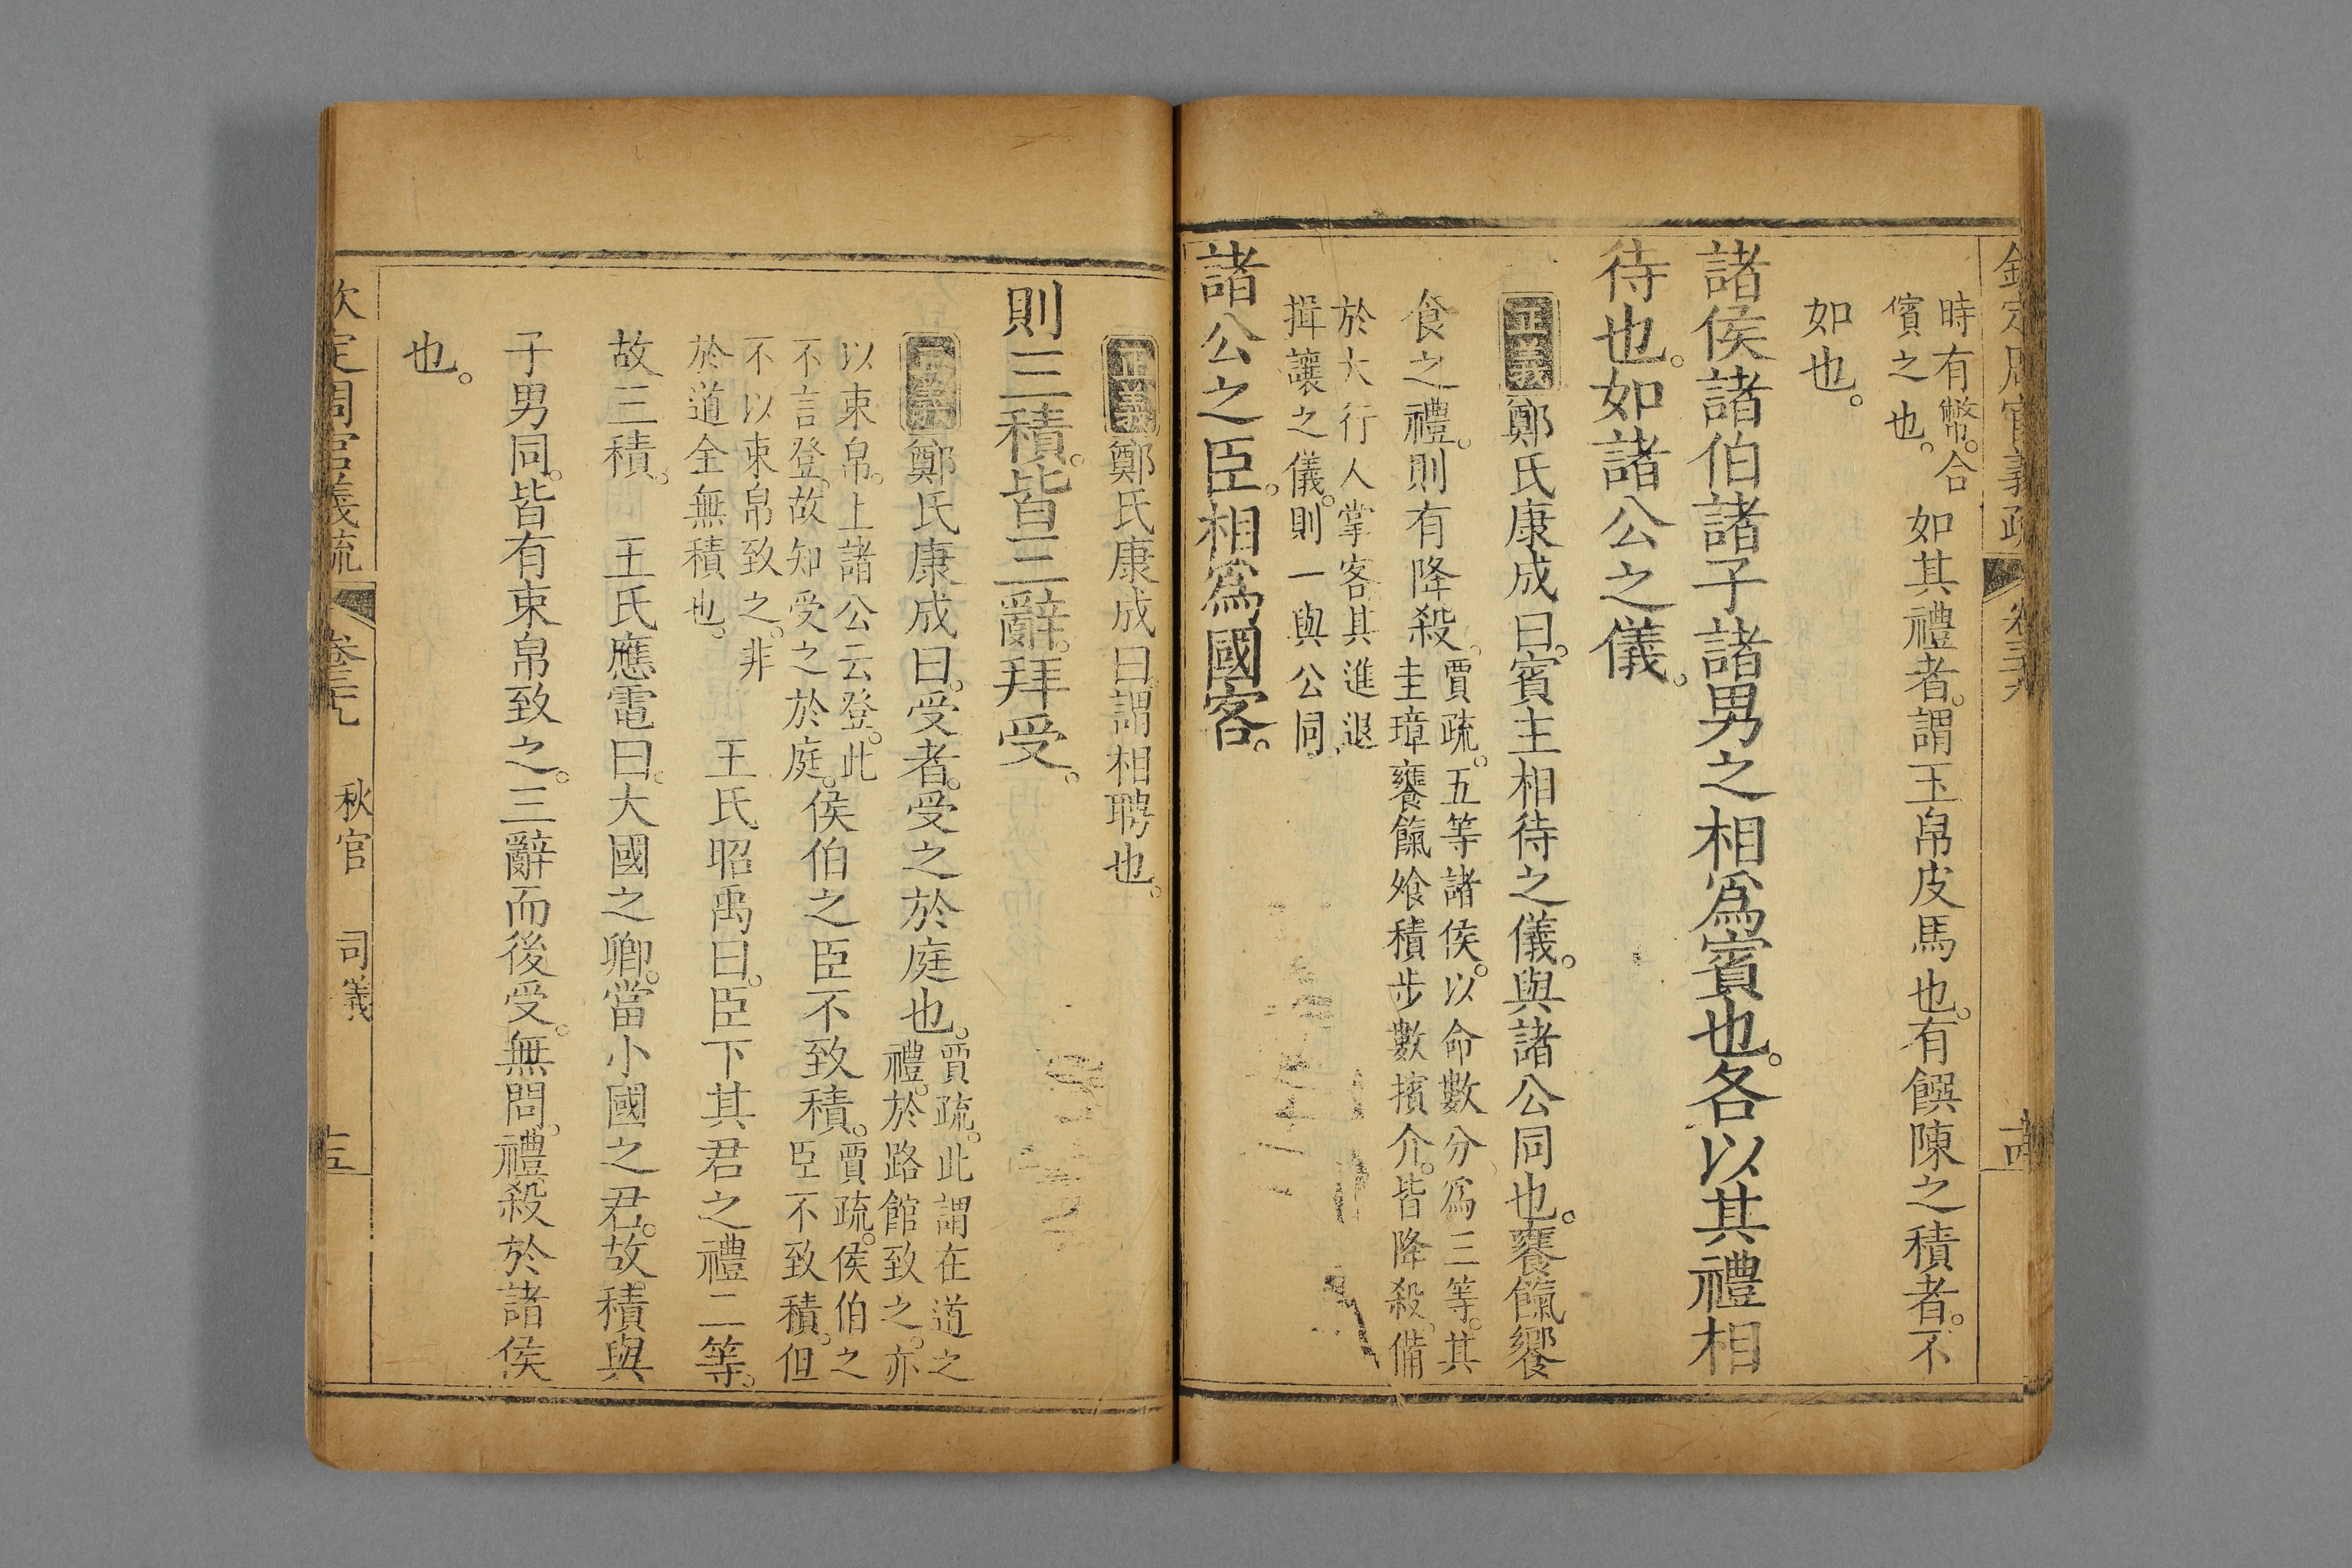 欽定周官義疏 卷三六
時有幣。合
儐之也。
如其禮者。謂玉帛皮馬也。有饌陳之積者。不
如也。
諸侯諸伯諸子諸男之相爲賓也。各以其禮相
待也。如諸公之儀。
正義鄭氏康成曰。賓主相待之儀。與諸公同也。饔餼饗
食之禮。則有降殺。
賈疏。五等諸侯。以命數分爲三等。其
圭璋饔餼飧積步數擯介。皆降殺。備
於大行人掌客其進退
揖讓之儀。則一與公同。
諸公之臣。相爲國客。
正義鄭氏康成曰。謂相聘也。
則三積。皆三辭。拜受。
正義鄭氏康成曰。受者。受之於庭也。
賈疏。此謂在道之
禮。於路館致之。亦
以束帛。上諸公云登。此
不言登。故知受之於庭。
侯伯之臣不致積。
賈疏。侯伯之
臣不致積。但
不以束帛致之。非
於道全無積也。
王氏昭禹曰。臣下其君之禮二等。
故三積。 王氏應電曰。大國之卿。當小國之君。故積與
子男同。皆有束帛致之。三辭而後受。無問。禮殺於諸侯
也。
欽定周官義疏 卷三七 秋官 司儀